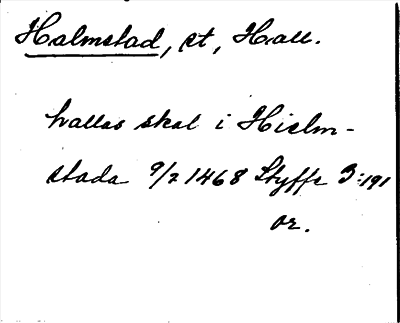 Halmstad, st, Hall.
hallas skal i Hielm-
stada 9/2 1468 Styffe 3:191
or.